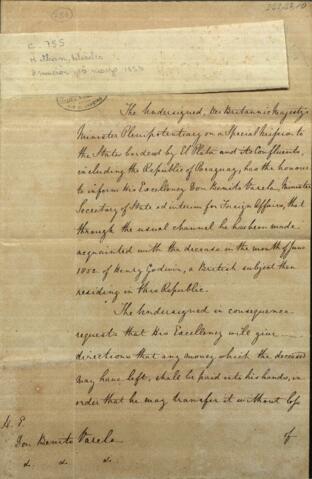 The Undersigned, Her Britannic Majesty's
Minister Plenipotentiary on a Special Mission to
the States bordered by El Plata and its Confluents,
including the Republic of Paraguay, has the honour
to inform His Excellency Don Benito Varela, Minister
Secretary of State ad interim for Foreign Affairs, that
through the usual channel he has been made
acquainted with the decease in the month of June
1852 of Henry Godwin, a British subject then
residing in this Republic.
The Undersigned in consequence
requests that His Excellency will give
directions that any money which the deceased
may have left, shall be paid into his hands, in
order that he may transfer it without loss
H. E.
Don Benito Varela
of
&. &. &.